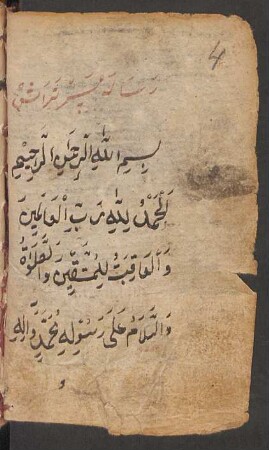 4
رسالهٔ سر تراشی
بِسمِ اللهِ الرَّحمٰنِ الرَّحِیمِ
اَلحَمْدُ لِلّٰهِ رَبِّ العَالَمِینَ
وَالعَاقِبَةُ لِلمُتَّقِینَ وَالصَّلٰوةُ
وَالسَّلَامُ عَلَی رَسُولِهِ مُحَمَّدٍ وَّالِهِ
و